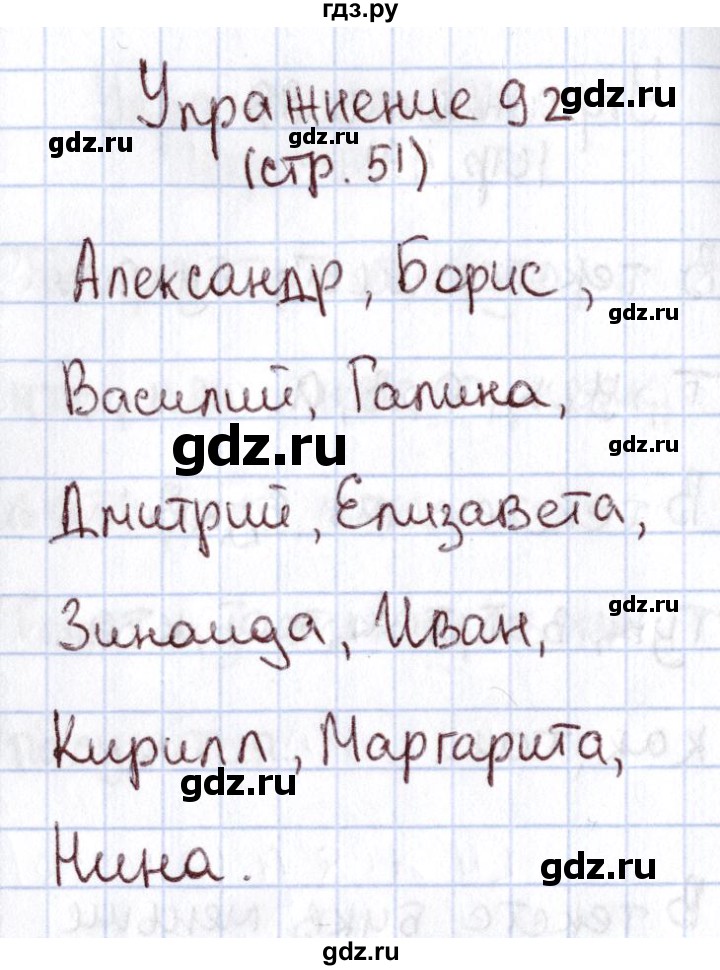 гдз.ру
Упражнение 92
gdz.ru
gdz.ru
gdz.ru
(стр. 51)
Александр, Борис,
gdz.ru
Василий, Галина,
gdz.ru
gdz.ru
Дмитрий, Елизавета,
gdz.ru
Зинаида, Иван,
Кирилл, Маргарита,
gdz.ru
Нина.
gdz.ru
gdz.ru